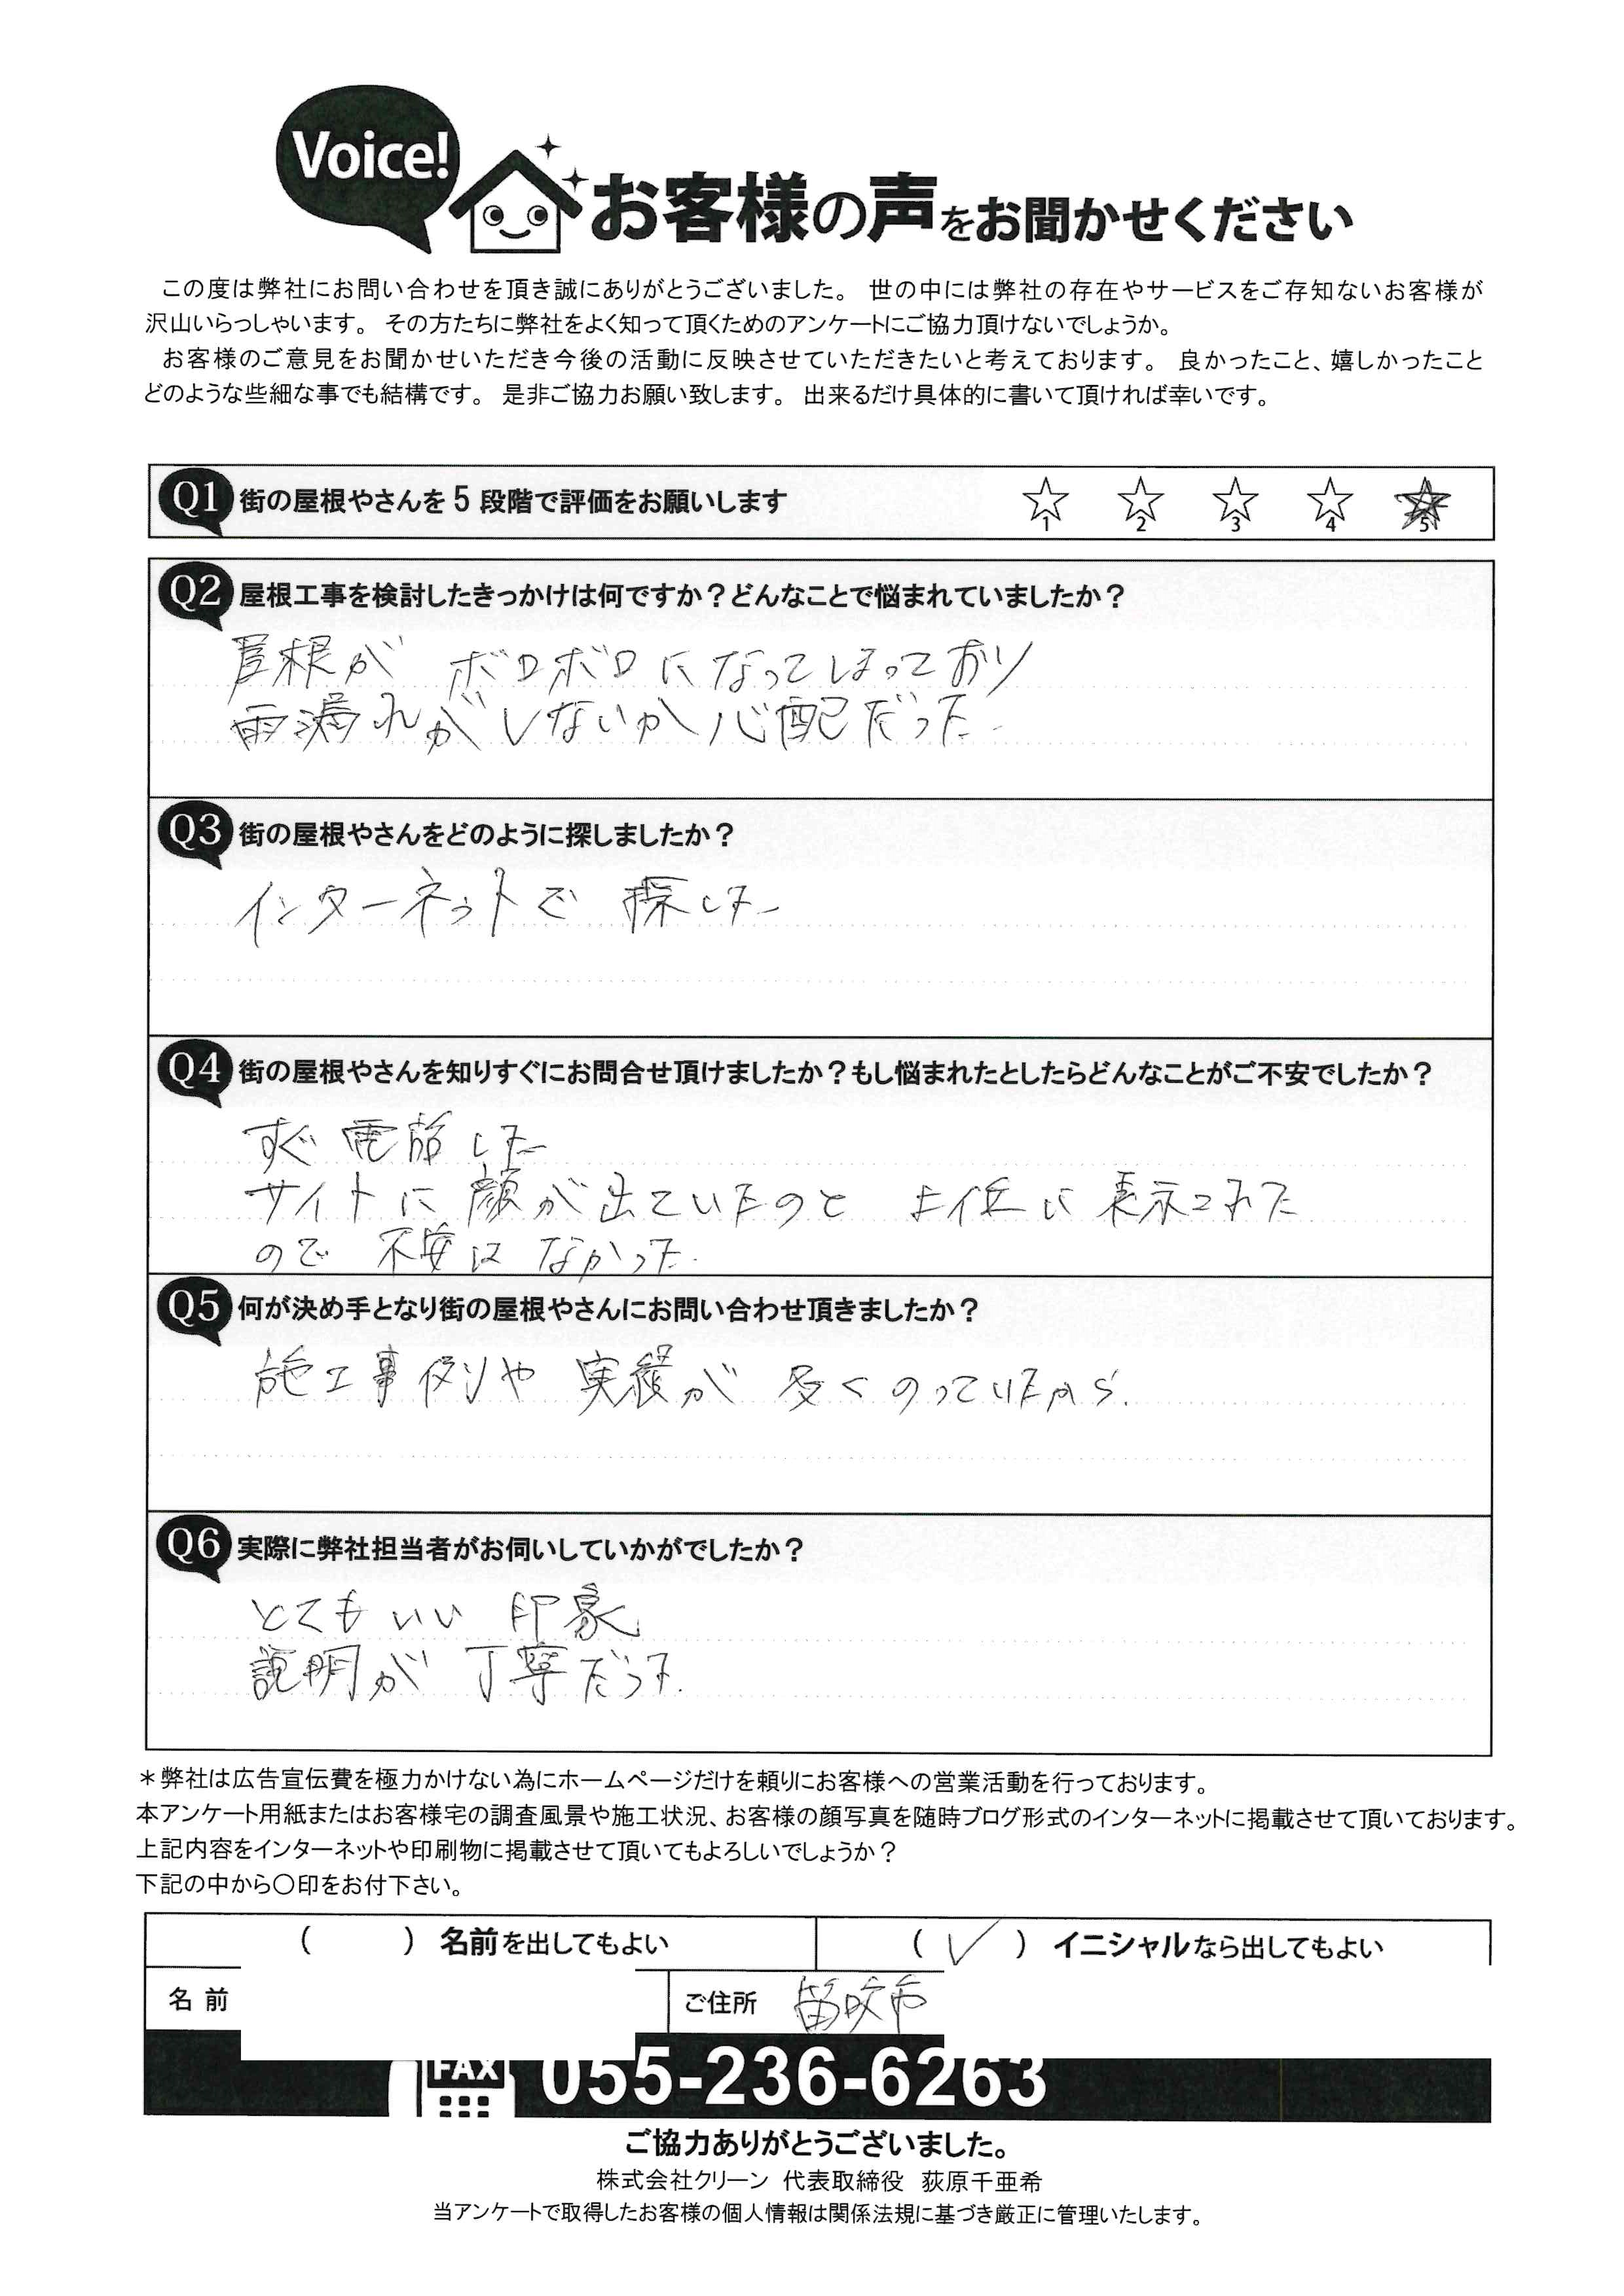 Voice!
お客様の声をお聞かせください
この度は弊社にお問い合わせを頂き誠にありがとうございました。 世の中には弊社の存在やサービスをご存知ないお客様が
沢山いらっしゃいます。 その方たちに弊社をよく知って頂くためのアンケートにご協力頂けないでしょうか。
お客様のご意見をお聞かせいただき今後の活動に反映させていただきたいと考えております。 良かったこと、嬉しかったこと
どのような些細な事でも結構です。 是非ご協力お願い致します。 出来るだけ具体的に書いて頂ければ幸いです。
Q1 街の屋根やさんを 5 段階で評価をお願いします ☆1 ☆2 ☆3 ☆4 ★5
Q2 屋根工事を検討したきっかけは何ですか？どんなことで悩まれていましたか？
屋根が ボロボロになってしまっており
雨漏れがしないか心配だった。
Q3 街の屋根やさんをどのように探しましたか？
インターネットで 探した
Q4 街の屋根やさんを知りすぐにお問合せ頂けましたか？もし悩まれたとしたらどんなことがご不安でしたか？
すぐ 電話した
サイトに 顔が出ていたのと 上位に 表示された
ので 不安は なかった。
Q5 何が決め手となり街の屋根やさんにお問い合わせ頂きましたか？
施工事例や 実績が 多くのっていたから。
Q6 実際に弊社担当者がお伺いしていかがでしたか？
とてもいい 印象
説明が 丁寧だった。
＊弊社は広告宣伝費を極力かけない為にホームページだけを頼りにお客様への営業活動を行っております。
本アンケート用紙またはお客様宅の調査風景や施工状況、お客様の顔写真を随時ブログ形式のインターネットに掲載させて頂いております。
上記内容をインターネットや印刷物に掲載させて頂いてもよろしいでしょうか？
下記の中から〇印をお付下さい。
（　　）名前を出してもよい （✓）イニシャルなら出してもよい
名 前 ご住所 笛吹市
FAX 055-236-6263
ご協力ありがとうございました。
株式会社クリーン 代表取締役 荻原千亜希
当アンケートで取得したお客様の個人情報は関係法規に基づき厳正に管理いたします。